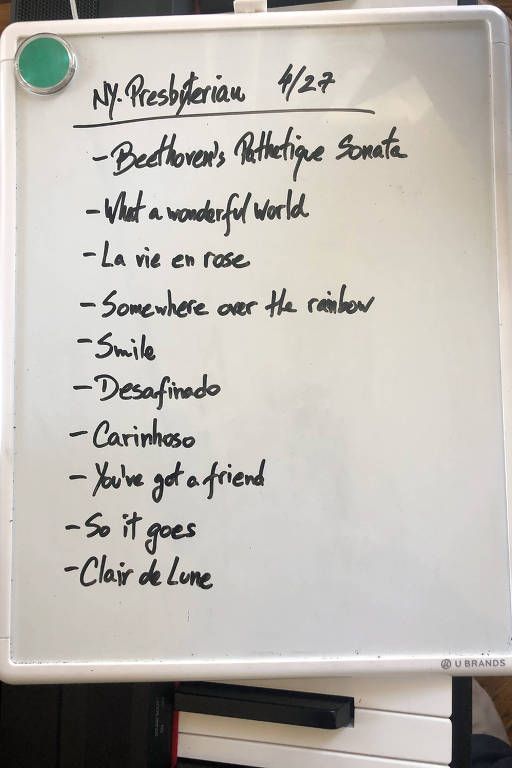 NY. Presbyterian 4/27
- Beethoven's Pathetique Sonata
- What a wonderful world
- La vie en rose
- Somewhere over the rainbow
- Smile
- Desafinado
- Carinhoso
- You've got a friend
- So it goes
- Clair de Lune
U BRANDS